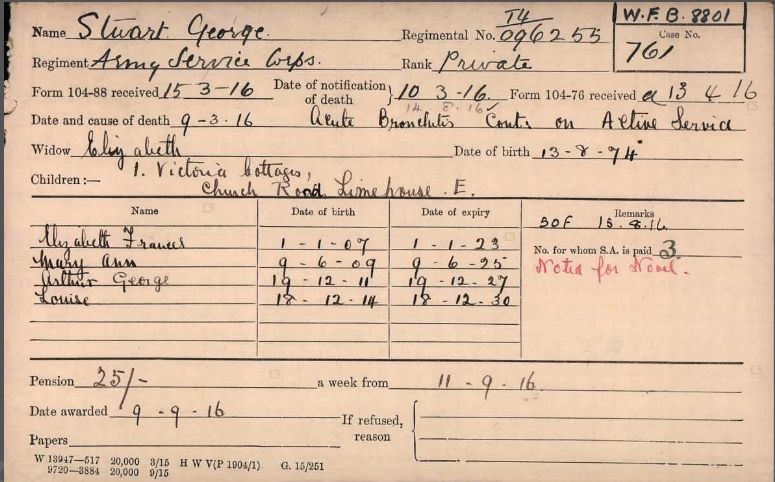 W.F.B. 8801
Name Stuart George. Regimental No. T4 096255 Case No. 761
Regiment Army Service Corps. Rank Private
Form 104-88 received 15 3-16 Date of notification of death } 10 3-16. Form 104-76 received a 13 4 16
14. 8. 16
Date and cause of death 9-3.16 Acute Bronchitis Contd on Active Service
Widow Elizabeth Date of birth 13-8-74
Children:— 1. Victoria Cottages,
Church Road, Limehouse. E.
Name Date of birth Date of expiry Remarks
SOF 15.8.16.
Elizabeth Frances 1-1-07 1-1-23 No. for whom S.A. is paid 3.
Mary Ann 9-6-09 9-6-25 Noted for Novel.
Arthur George 19-12-11 19-12-27
Louise 18-12-14 18-12-30
Pension 25/- a week from 11-9-16.
Date awarded 9-9-16 If refused, reason
Papers
W 13947—517 20,000 3/15 H W V(P 1904/1) G. 15/251
9720—3884 20,000 9/15